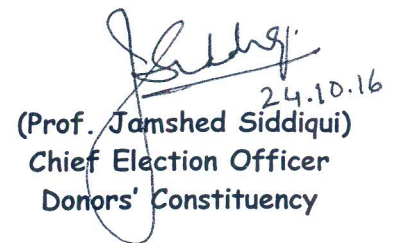 J Siddiqi
24.10.16
(Prof. Jamshed Siddiqui)
Chief Election Officer
Donors' Constituency